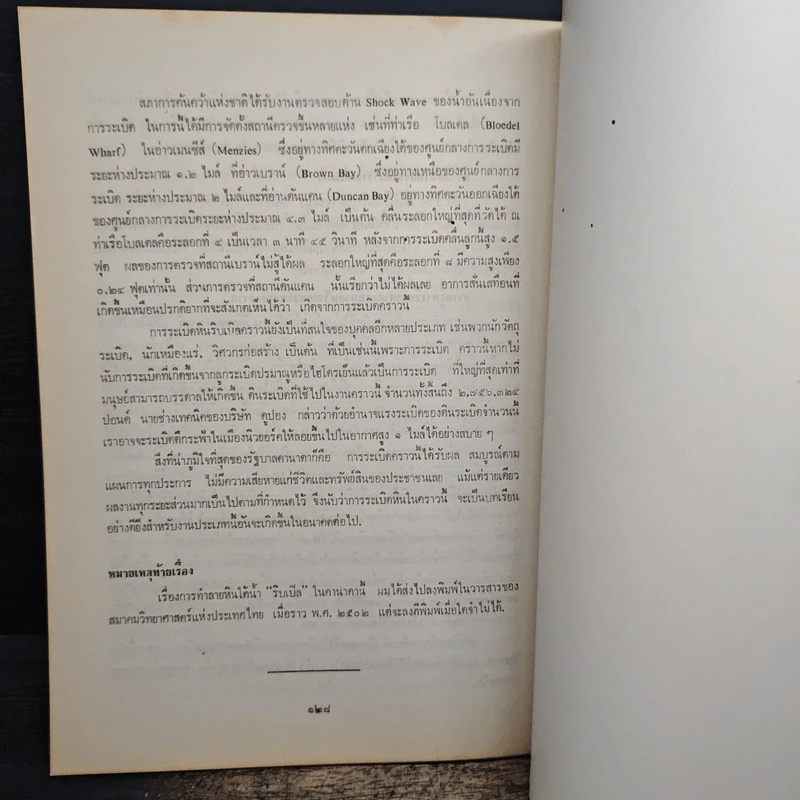 สภาการค้นคว้าแห่งชาติได้รับงานตรวจสอบด้าน Shock Wave ของน้ำอันเนื่องจาก
การระเบิด ในการนี้ได้มีการจัดตั้งสถานีตรวจขึ้นหลายแห่ง เช่นที่ท่าเรือ โบลเดล (Bloedel
Wharf) ในอ่าวเมนซีส์ (Menzies) ซึ่งอยู่ทางทิศตะวันตกเฉียงใต้ของศูนย์กลางการระเบิดมี
ระยะห่างประมาณ ๑.๒ ไมล์ ที่อ่าวเบราน์ (Brown Bay) ซึ่งอยู่ทางเหนือของศูนย์กลางการ
ระเบิด ระยะห่างประมาณ ๒ ไมล์และที่อ่านดันแคน (Duncan Bay) อยู่ทางทิศตะวันออกเฉียงใต้
ของศูนย์กลางการระเบิดระยะห่างประมาณ ๔.๓ ไมล์ เป็นต้น คลื่นระลอกใหญ่ที่สุดที่วัดได้ ณ
ท่าเรือโบลเดลคือระลอกที่ ๔ เป็นเวลา ๓ นาที ๔๕ วินาที หลังจากการระเบิดคลื่นลูกนี้สูง ๑.๕
ฟุต ผลของการตรวจที่สถานีเบราน์ไม่สู้ได้ผล ระลอกใหญ่ที่สุดคือระลอกที่ ๘ มีความสูงเพียง
๐.๒๔ ฟุตเท่านั้น ส่วนการตรวจที่สถานีดันแคน นั้นเรียกว่าไม่ได้ผลเลย อาการสั่นเสทือนที่
เกิดขึ้นเหมือนปรกติยากที่จะสังเกตเห็นได้ว่า เกิดจากการระเบิดคราวนี้
การระเบิดหินริบเบิลคราวนี้ยังเป็นที่สนใจของบุคคลอีกหลายประเภท เช่นพวกนักวัตถุ
ระเบิด, นักเหมืองแร่, วิศวกรก่อสร้าง เป็นต้น ที่เป็นเช่นนี้เพราะการระเบิด คราวนี้หากไม่
นับการระเบิดที่เกิดขึ้นจากลูกระเบิดปรมาณูหรือไฮโดรเย็นแล้วเป็นการระเบิด ที่ใหญ่ที่สุดเท่าที่
มนุษย์สามารถบรรดาลให้เกิดขึ้น ดินระเบิดที่ใช้ไปในงานคราวนี้ จำนวนทั้งสิ้นถึง ๒,๗๕๖,๓๒๔
ปอนด์ นายช่างเทคนิคของบริษัท ดูปอง กล่าวว่าด้วยอำนาจแรงระเบิดของดินระเบิดจำนวนนี้
เราอาจจะระเบิดตึกระฟ้าในเมืองนิวยอร์คให้ลอยขึ้นไปในอากาศสูง ๑ ไมล์ได้อย่างสบาย ๆ
สิ่งที่น่าภูมิใจที่สุดของรัฐบาลคานาดาก็คือ การระเบิดคราวนี้ได้รับผล สมบูรณ์ตาม
แผนการทุกประการ ไม่มีความเสียหายแก่ชีวิตและทรัพย์สินของประชาชนเลย แม้แต่รายเดียว
ผลงานทุกระยะส่วนมากเป็นไปตามที่กำหนดไว้ จึงนับว่าการระเบิดหินในคราวนี้ จะเป็นบทเรียน
อย่างดียิ่งสำหรับงานประเภทนี้อันจะเกิดขึ้นในอนาคตต่อไป.
หมายเหตุท้ายเรื่อง
เรื่องการทำลายหินใต้น้ำ "ริบเบิล" ในคานาดานี้ ผมได้ส่งไปลงพิมพ์ในวารสารของ
สมาคมวิทยาศาสตร์แห่งประเทศไทย เมื่อราว พ.ศ. ๒๕๐๒ แต่จะลงตีพิมพ์เมื่อใดจำไม่ได้.
๑๒๘